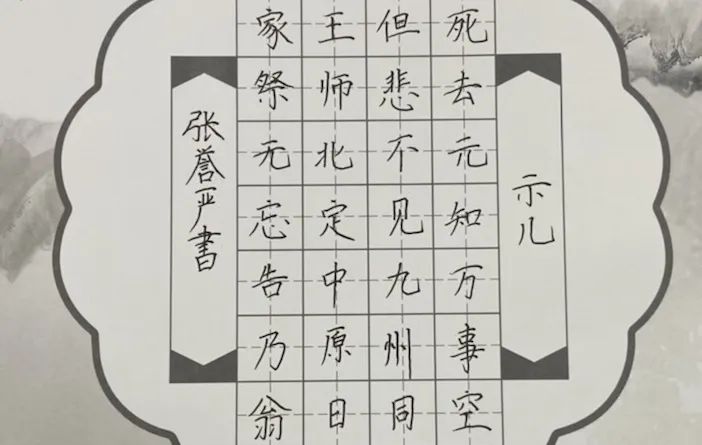 示儿
死去元知万事空
但悲不见九州同
王师北定中原日
家祭无忘告乃翁
张誉严書